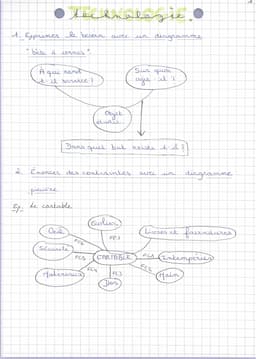 technologie.
1. Exprimer le besoin avec un diagramme
"bête à cornes".
A qui rend
t-il service ?
Sur quoi
agit-il ?
Objet
étudié
Dans quel but existe t-il ?
2. Énoncer des contraintes avec un diagramme
pieuvre
Eg. Le cartable
Écolier
FP1
Livres et fournitures
Intempéries
Main
FC3
Dos
FC4
Matériaux
FC5
Sécurité
FC6
CARTABLE